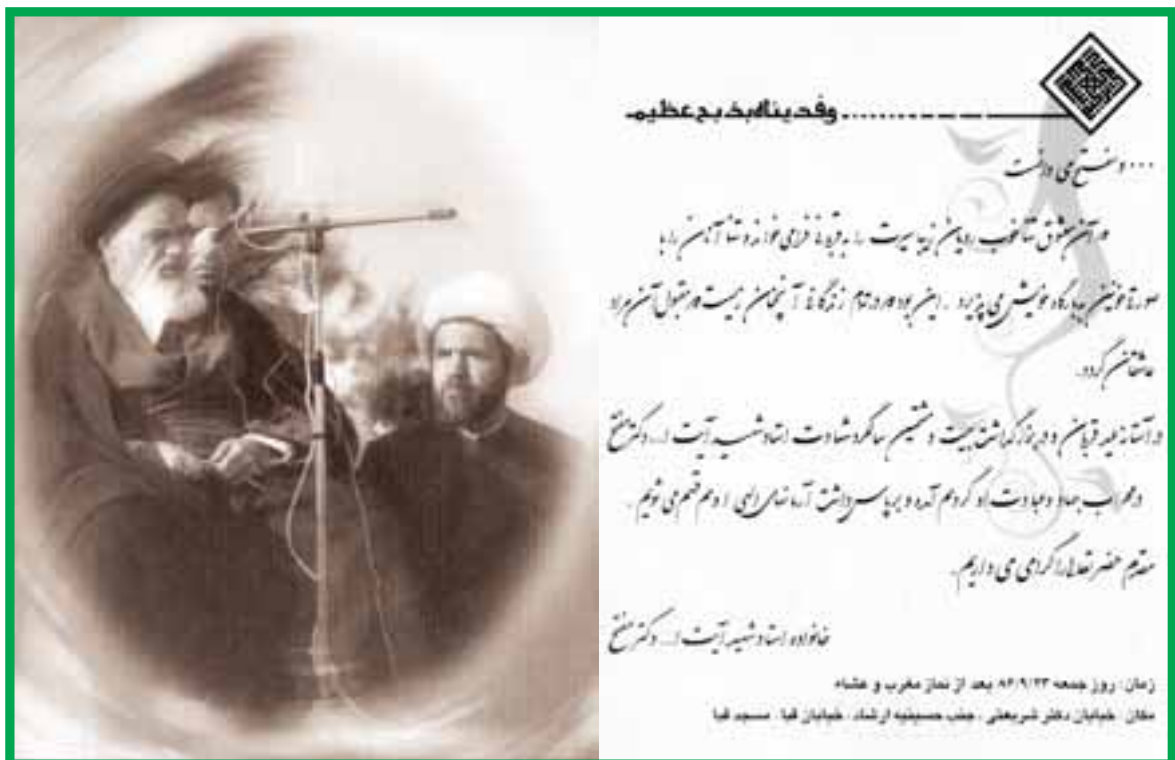 وفدیناه بذبح عظیم
... و مفتح می دانست
در آن معشوق تنها خوب رویان زیبا سیرت را به قربانی فرا می خواند و تنها آنان را با
صورتی خونین به بارگاه خویش می پذیرد . این بود که در تمام زندگانی آنچنان زیست که مقبول آن مراد
عاشقان گردد.
در آستانه عید قربان و در بزرگداشت بیست و هشتمین سالگرد شهادت استاد شهید آیت ا... دکتر مفتح
در محراب جهاد و عبادت او گردهم آمده و بر پاسداشت آرمانهای الهی او هم قسم می شویم .
مقدم حضرتعالی را گرامی می داریم.
خانواده استاد شهید آیت ا... دکتر مفتح
زمان: روز جمعه ۸۶/۹/۲۳ بعد از نماز مغرب و عشاء
مکان: خیابان دکتر شریعتی ، جنب حسینیه ارشاد ، خیابان قبا ، مسجد قبا